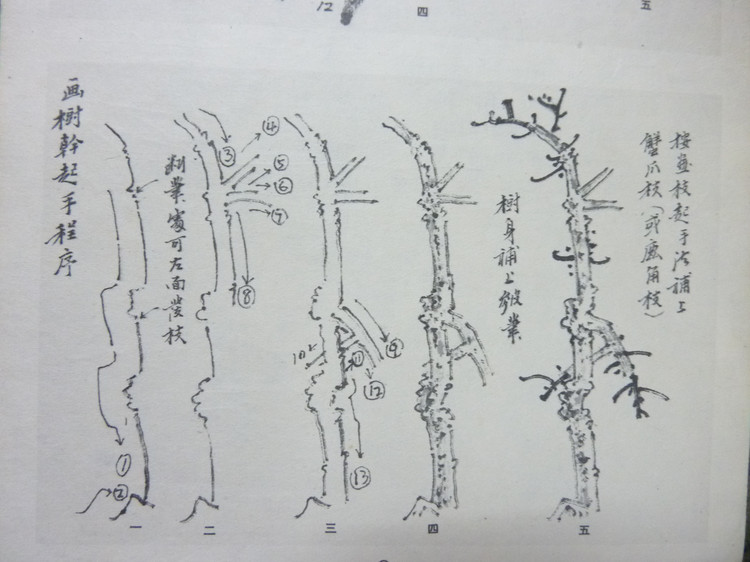 12
四
五
画樹幹起手程序
處可左面枝
樹身補上皴
按枝起手法補上
蟹爪枝（或鹿角枝）
③
④
⑤
⑥
⑦
⑧
⑨
10
⑪
⑫
⑬
①
②
一
二
三
四
五